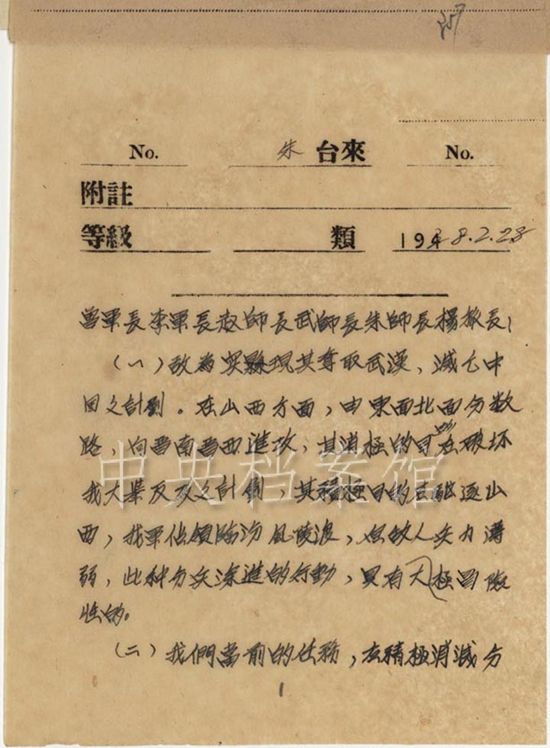 No. 朱 台來 No.
附註
等級 類 1938.2.28
曾軍長李軍長赵師長武師長朱師長楊旅長:
(一)敌為实現其夺取武漢,滅亡中
囯之計劃。在山西方面,由東面北面分数
路,向晋南晋西進攻,其消極的目的在破坏
我大举反攻之計劃,其積極目的在驱逐山
西,我軍佔領臨汾風陵渡,但敌人兵力薄
弱,此种分兵深進的行動,具有大極冒險
性的。
(二)我們當前的任務,在積極消滅分
1
中央档案馆